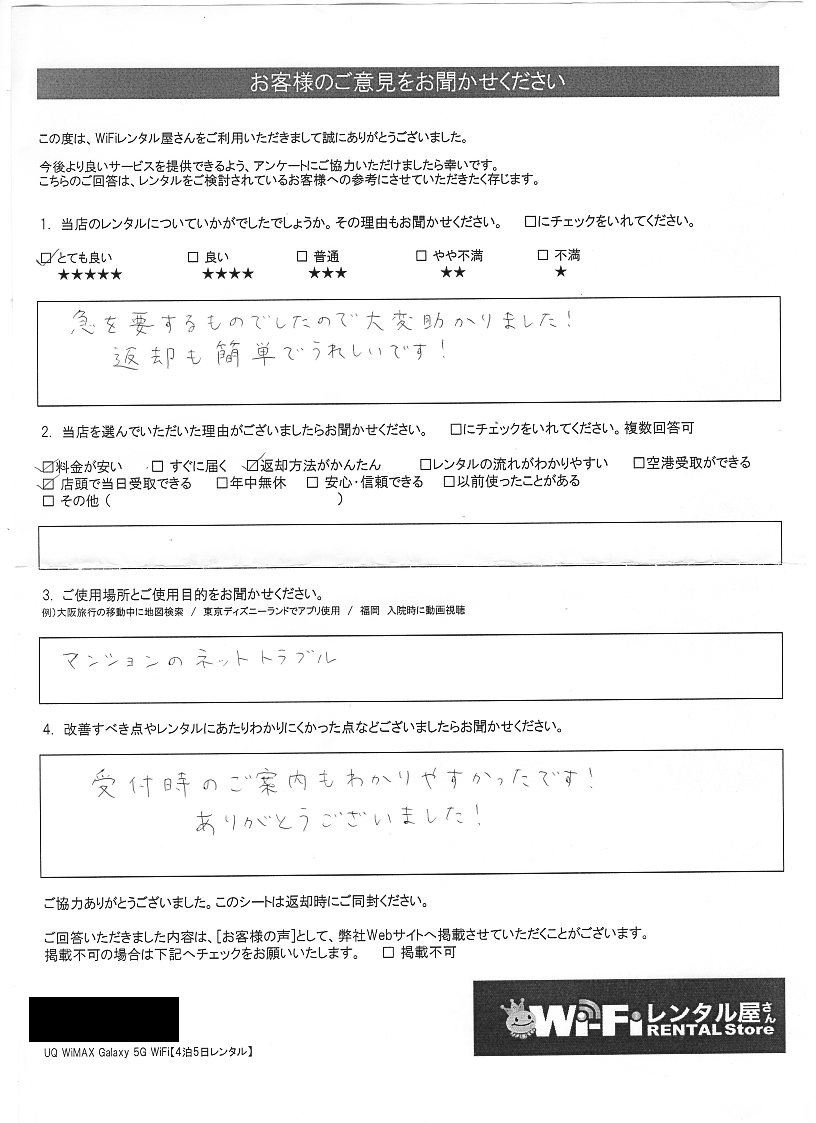 お客様のご意見をお聞かせください
この度は、WiFiレンタル屋さんをご利用いただきまして誠にありがとうございました。
今後より良いサービスを提供できるよう、アンケートにご協力いただけましたら幸いです。
こちらのご回答は、レンタルをご検討されているお客様への参考にさせていただきたく存じます。
1. 当店のレンタルについていかがでしたでしょうか。その理由もお聞かせください。 □にチェックをいれてください。
☑とても良い □ 良い □ 普通 □ やや不満 □ 不満
★★★★★ ★★★★ ★★★ ★★ ★
急を要するものでしたので大変助かりました!
返却も簡単でうれしいです!
2. 当店を選んでいただいた理由がございましたらお聞かせください。 □にチェックをいれてください。複数回答可
☑料金が安い □ すぐに届く ☑返却方法がかんたん □レンタルの流れがわかりやすい □空港受取ができる
☑ 店頭で当日受取できる □年中無休 □ 安心・信頼できる □以前使ったことがある
□ その他 ( )
3. ご使用場所とご使用目的をお聞かせください。
例)大阪旅行の移動中に地図検索 / 東京ディズニーランドでアプリ使用 / 福岡 入院時に動画視聴
マンションのネットトラブル
4. 改善すべき点やレンタルにあたりわかりにくかった点などございましたらお聞かせください。
受付時のご案内もわかりやすかったです!
ありがとうございました!
ご協力ありがとうございました。このシートは返却時にご同封ください。
ご回答いただきました内容は、[お客様の声]として、弊社Webサイトへ掲載させていただくことがございます。
掲載不可の場合は下記へチェックをお願いいたします。 □ 掲載不可
Wi-Fiレンタル屋さん
RENTAL Store
UQ WiMAX Galaxy 5G WiFi【4泊5日レンタル】